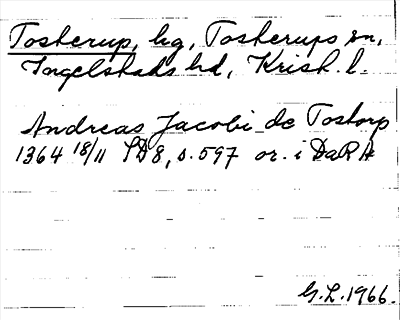 Tosterup, hg, Tosterups sn,
Ingelstads hd, Krist. l.
Andreas Jacobi de Tostorp
1364 18/11 SD8, s. 597 or. i DaRA
G.L. 1966.